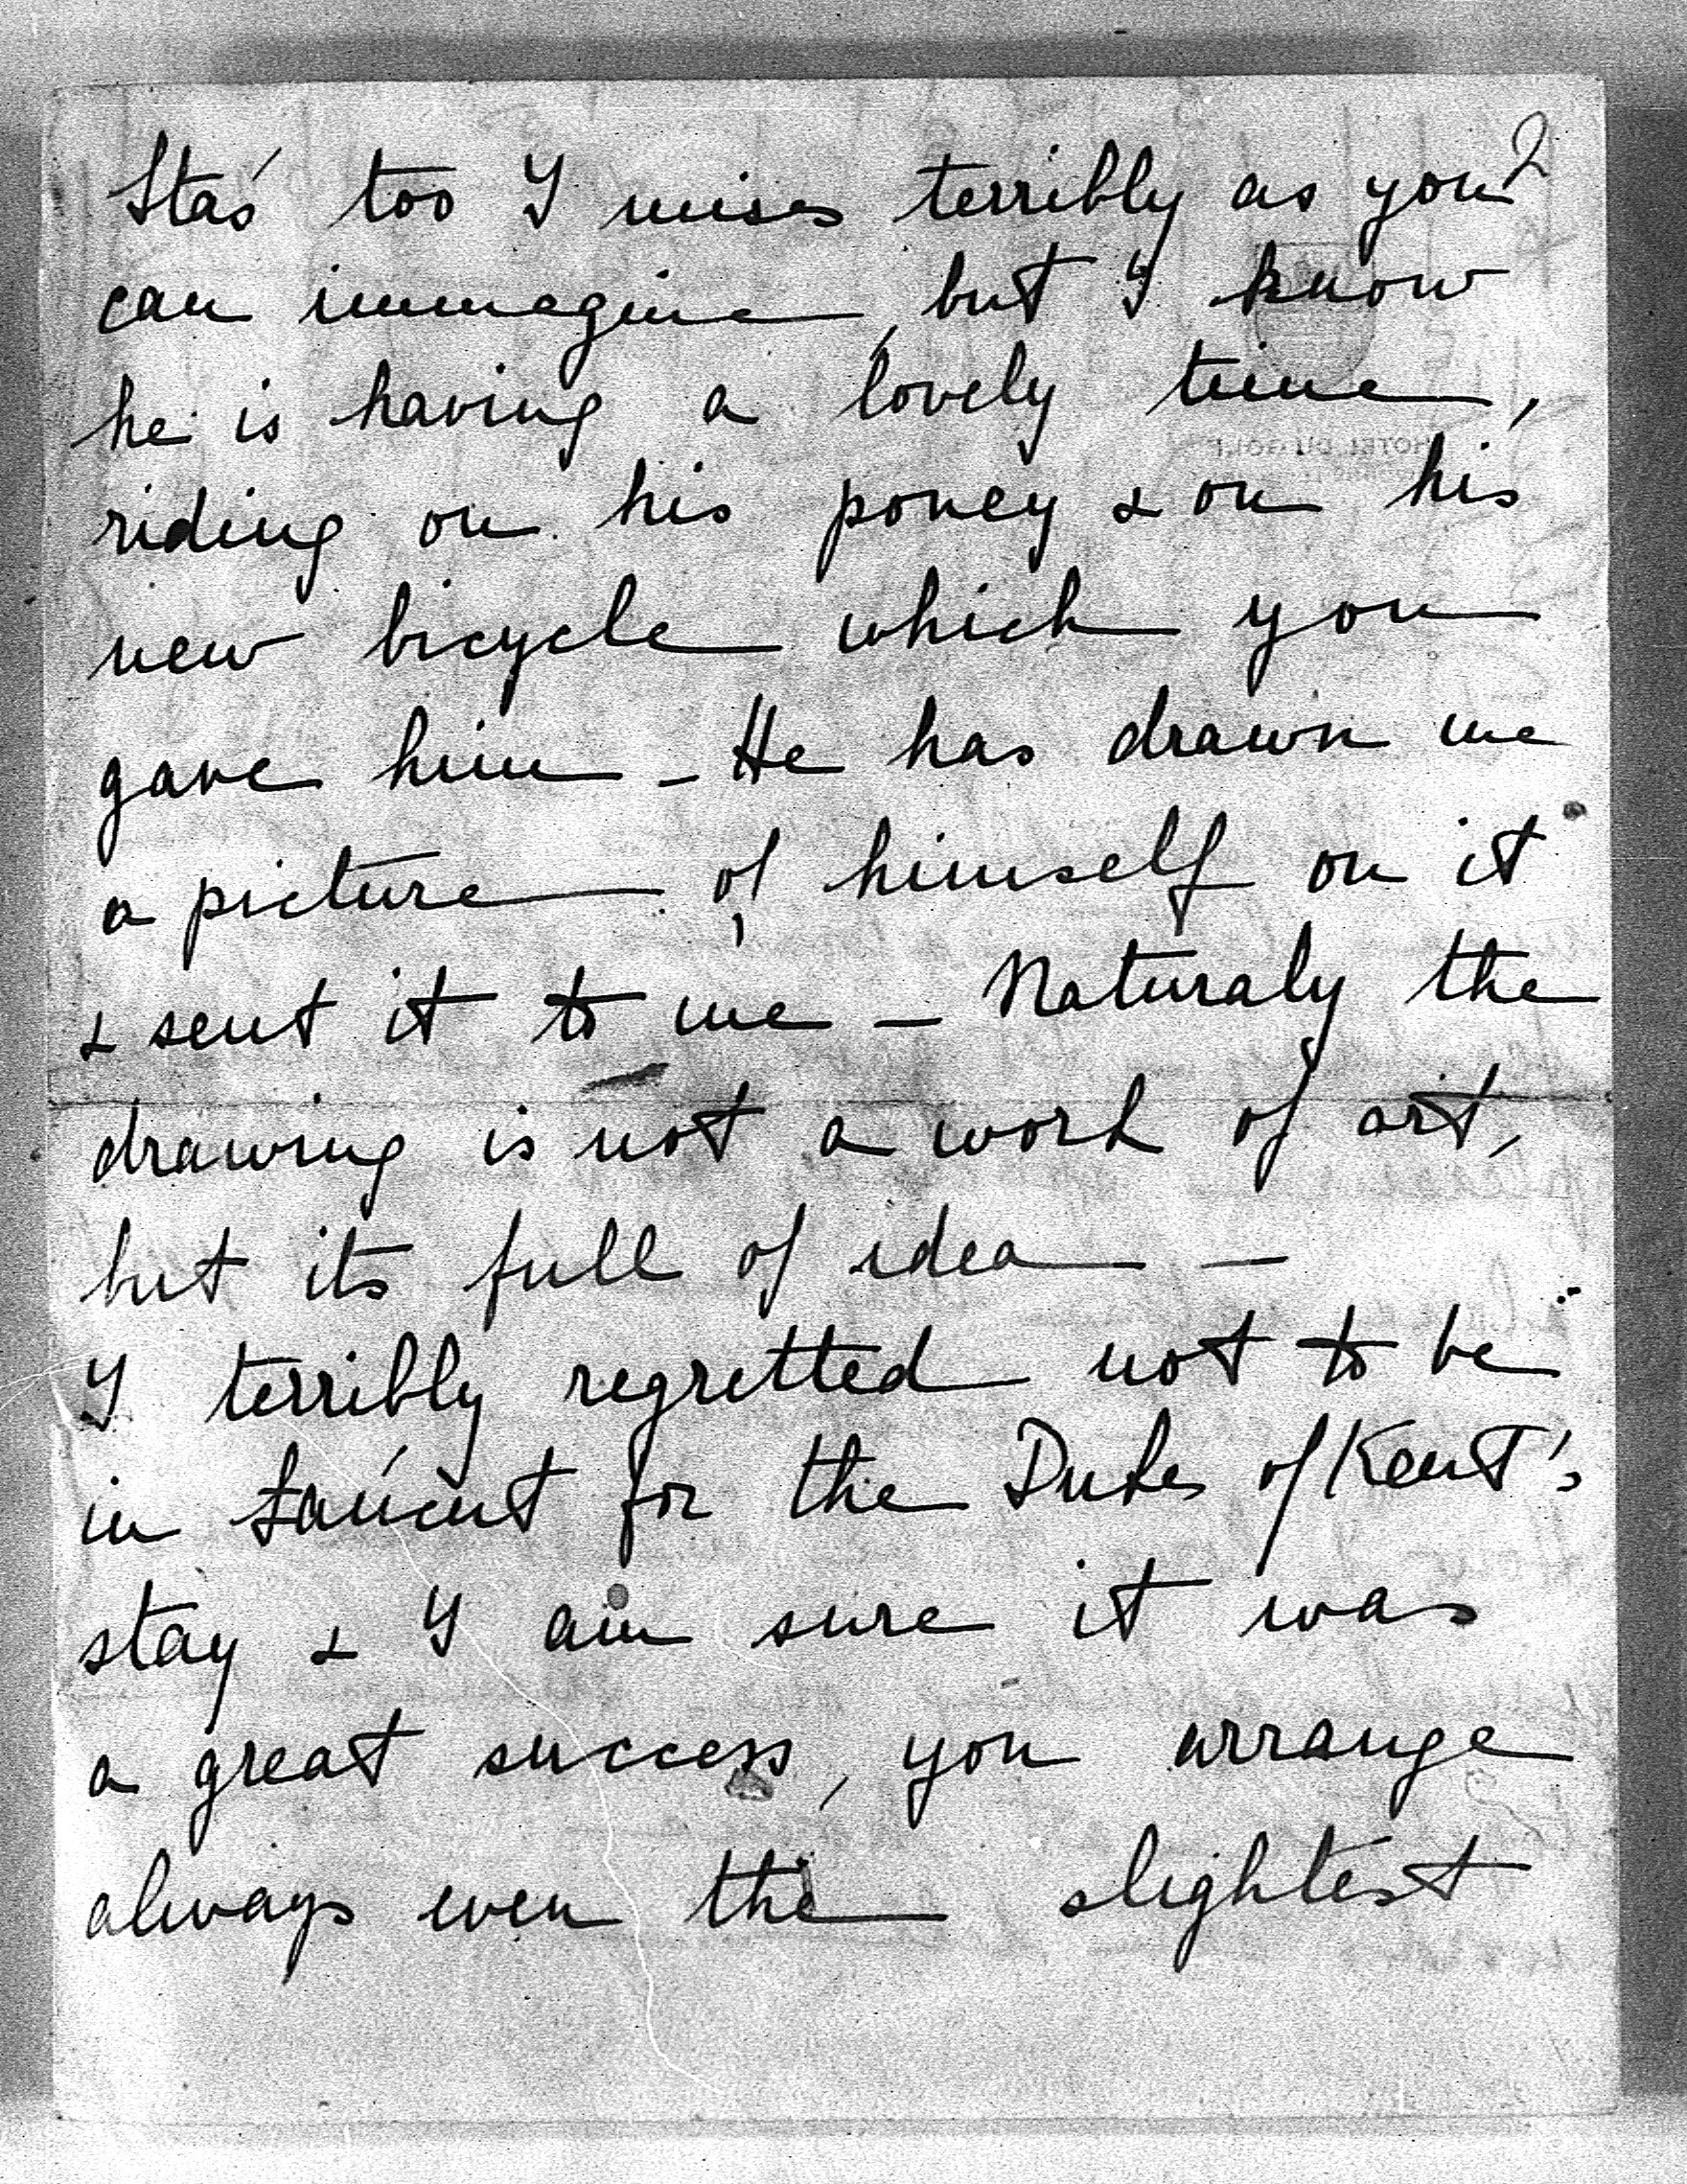 2
Staś too I miss terribly as you
can immagine, but I know
he is having a lovely time,
riding on his poney & on his
new bicycle which you
gave him - He has drawn me
a picture of himself on it
& sent it to me - Naturaly the
drawing is not a work of art,
but its full of idea -
I terribly regretted not to be
in Łańcut for the Dukes of Kent's
stay & I am sure it was
a great success, you arrange
always even the slightest